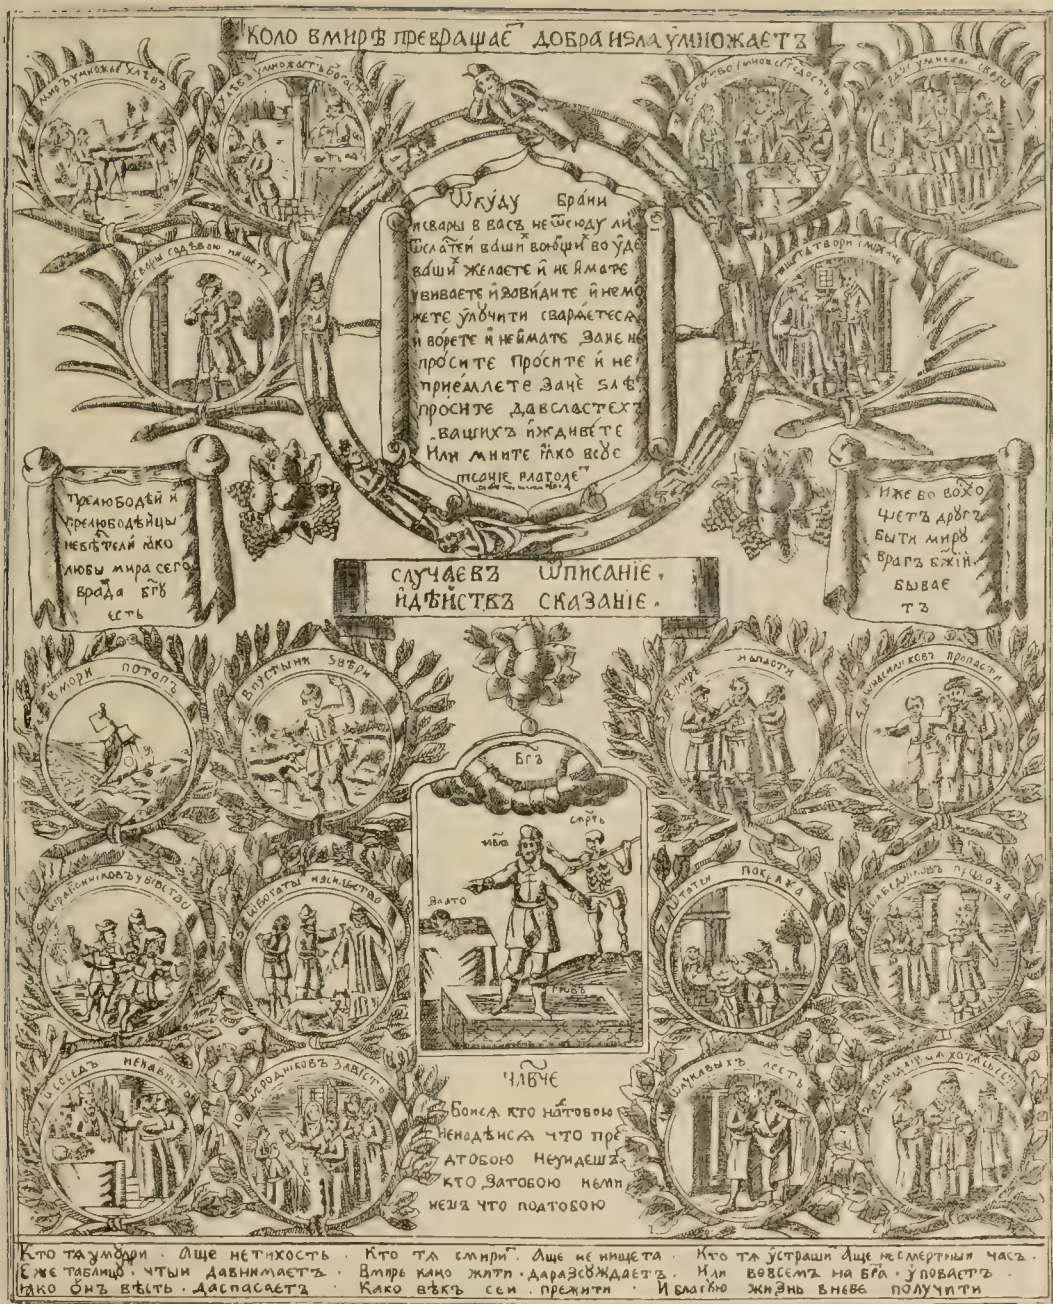 КОЛО ВМИРѢ ПРЕВРАЩАЕТ ДОБРА ИЗЛА УМНОЖАЕТЪ
МИРЪ УМНОЖАЕ ХЛѢВЪ
ХЛѢВЪ УМНОЖАЕТЪ БОГАТ
БОГАТСТВО УМНОЖАЕ ГОРДОСТЬ
СВАРЫ СОДѢВАЮ НИЩЕТУ
НИЩЕТА ТВОРИ СМИРЕНИЕ
Ѿкуду брани
исвары в васъ неѿсюду ли
ѿсластей ваши воюющи во уде
ваши желаете и не имате
увиваете изавидите инемо
жете улучити сваряетеся
и борете и неимате зане не
просите просите и не
приемлете зане злѣ
просите давсластехъ
вашихъ иждивете
Или мните яко всуе
писание глаголе
прелюбодѣи и
прелюбодѣйцы
невѣстели яко
любы мира сего
вражда бгу
есть
Иже бо восхо
щетъ другъ
быти миру
врагъ бжий
бывае
тъ
СЛУЧАЕВЪ ѾПИСАНІЕ.
ИДѢЙСТВЪ СКАЗАНІЕ.
В МОРИ ПОТОПЪ
ВПУСТЫНИ ЗВѢРИ
ВМИРЕ НАПАСТИ
ПРОПАСТИ
ѾРАЗБОИНИКОВЪ УБІВСТВО
ѾБОГАТЫ НАСИЛЬСТВО
ѾТАТЕИ ПОКРАЖА
ѾЯБЕДНИКОВЪ ПРОДАЖА
ѾСОСѢДЪ НЕНАВИСТЬ
ѾСРОДНИКОВЪ ЗАВИСТЬ
ѾЛУКАВЫХЪ ЛЕСТЬ
бгъ
смрть
злато
гробъ
ЧЛВЧЕ
Боися кто натобою
ненадѣися что пре
дтобою неуидешъ
кто затобою неми
нешъ что подтобою
Кто тя умудри · Аще нетихость · Кто тя смири · Аще не нищета · Кто тя устраши Аще не смертныи часъ ·
Еже таблицу · чтыи давнимаетъ · Вмире како жити · даразсуждаетъ · Или вовсемъ на бга · уповаетъ ·
яко онъ вѣсть · даспасаетъ Како вѣкъ сеи прежити · И благую жизнь вневе получити